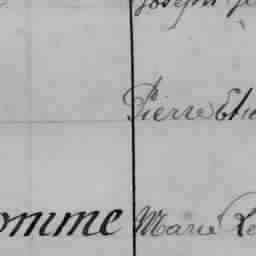 Joseph
Pierre Eti
omme Marie Le